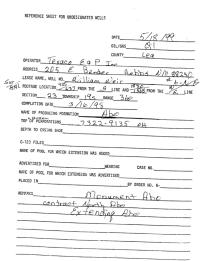 REFERENCE SHEET FOR UNDESIGNATED WELLS
DATE 5/18/99
OIL/GAS Oil
COUNTY Lea
OPERATOR Texaco E&P Inc
ADDRESS 205 E Bender Hobbs NM 88240
LEASE NAME, WELL NO. William Weir
FOOTAGE LOCATION FROM THE LINE AND FROM THE LINE
SECTION 23 TOWNSHIP 19s RANGE 36e
COMPLETION DATE
NAME OF PRODUCING FORMATION Abo
TOP OF PERFORATIONS 7322-9135 OH
DEPTH TO CASING SHOE
C-123 FILED
NAME OF POOL FOR WHICH EXTENSION WAS ASKED
ADVERTISED FOR HEARING CASE NO.
NAME OF POOL FOR WHICH EXTENSION WAS ADVERTISED
PLACED IN BY ORDER NO. R-
REMARKS Monument Abo
contract North Abo
Extending Abo